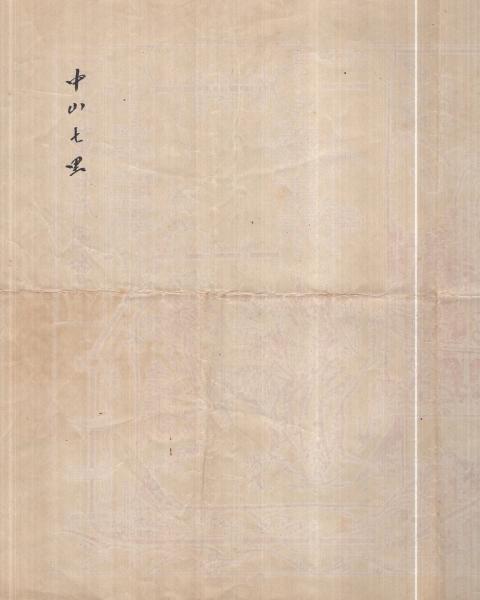 中山七里